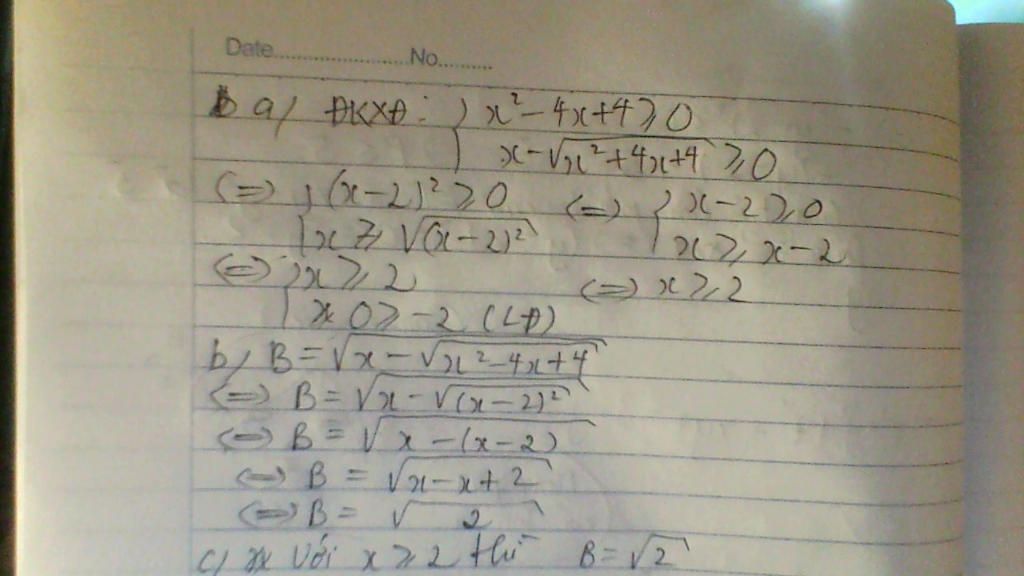 Date........................No..........
a/ ĐKXĐ: { x² - 4x + 4 ⩾ 0
x - √(x² + 4x + 4) ⩾ 0
(=) { (x - 2)² ⩾ 0 (=) { x - 2 ⩾ 0
x ⩾ √((x - 2)²) x ⩾ x - 2
(=) { x ⩾ 2 (=) x ⩾ 2
0 ⩾ -2 (LĐ)
b/ B = √(x - √(x² - 4x + 4))
(=) B = √(x - √((x - 2)²))
(=) B = √(x - (x - 2))
(=) B = √(x - x + 2)
(=) B = √2
c/ Với x ⩾ 2 thì B = √2